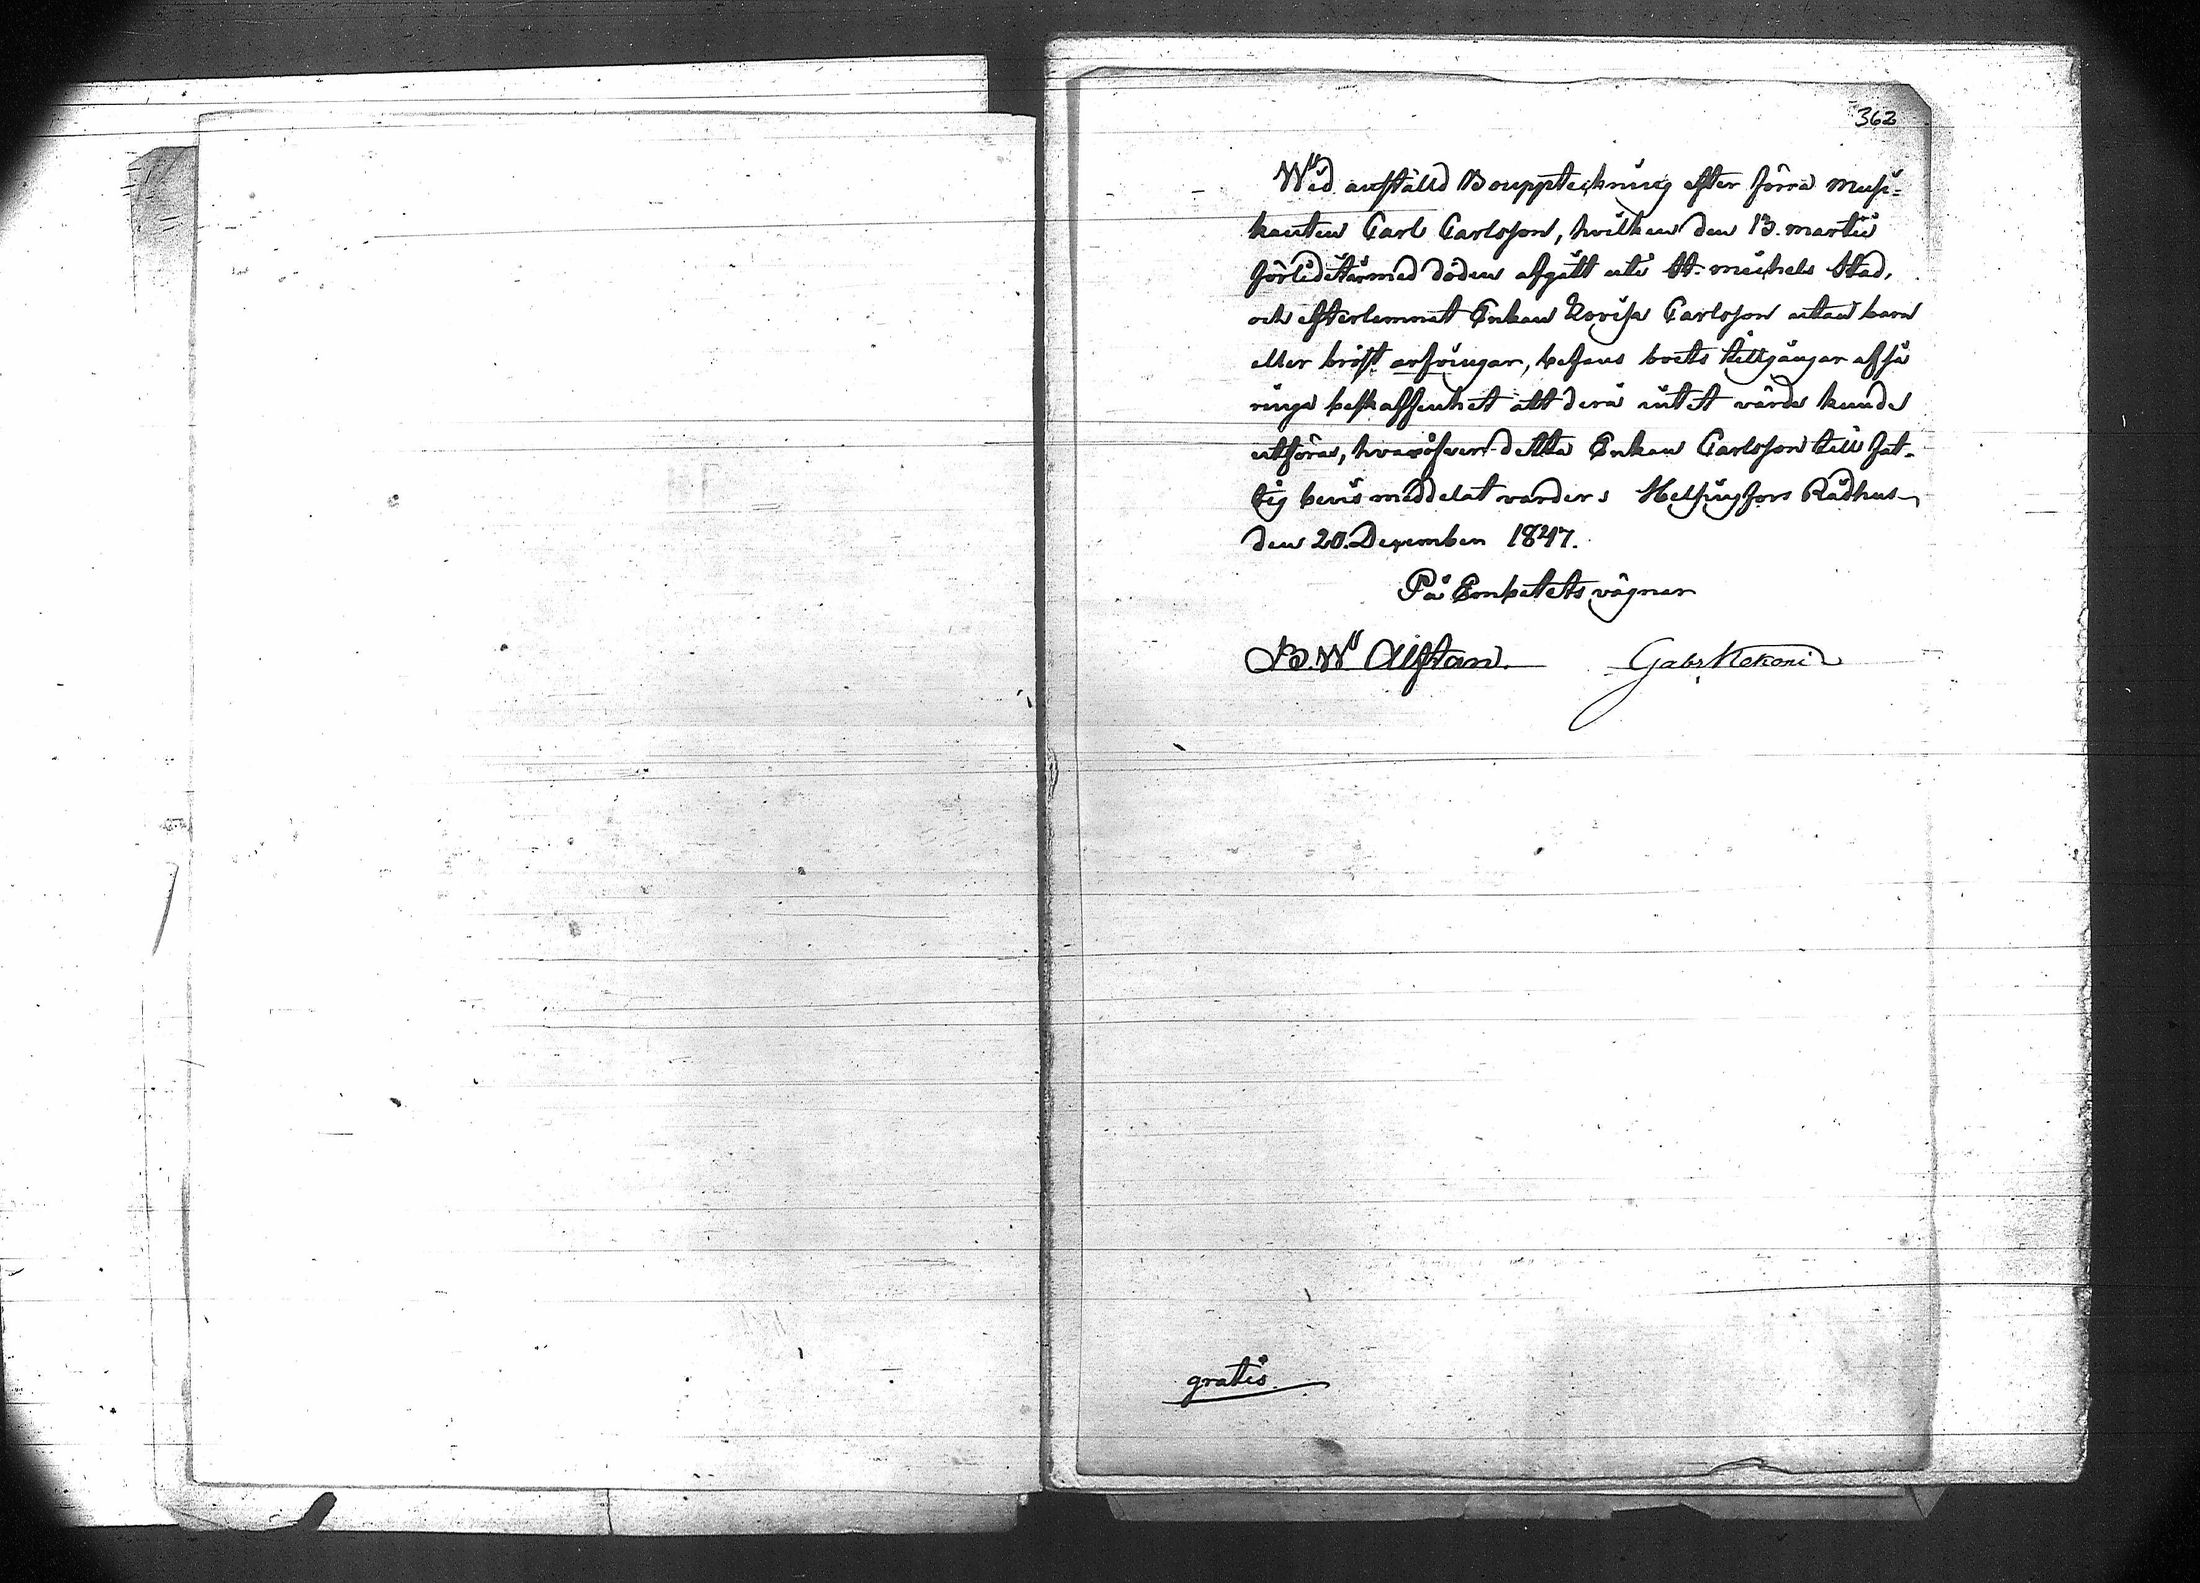 362
Wid anstäld Bouppteckning efter förra Musi-
kanten Carl Carlsson, hvilken den 13. Martii
förledit år med döden afgått uti St. Michels Stad,
och efterlemnat Enkan Lovisa Carlsson utan barn
eller bröst arfvingar, befans boets tillgångar af så
ringa beskaffenhet att derå intet värde kunde
utföras, hvaröfver detta Enkan Carlsson till fat-
tig bevis meddelat varder; Helsingfors Rådhus
den 20. December 1847.
På Embetets vägnar
B. W. Alftan. Gabr
gratis.